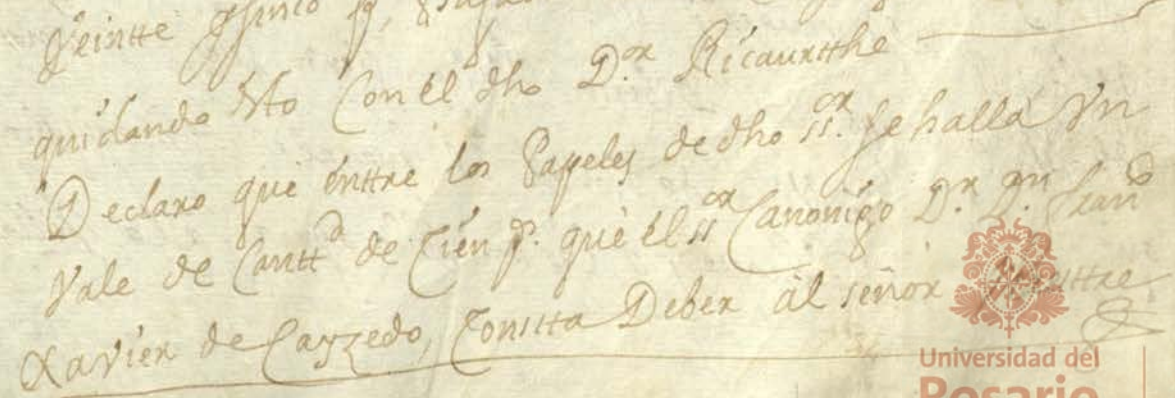 Veintte
quidando esto Con él dho D.or Ricaurtthe
Declaro què énttre los Papeles de dho ss.or se halla Vn
Vale de Cantt.d de Cién p.s què él ss.or Canonigo D.r D.n Fran.co
Xavier de Cayzedo, Constta Deber àl señor
Universidad del
Rosario